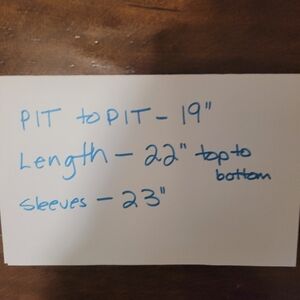 PIT to PIT - 19"
Length - 22" top to
bottom
Sleeves - 23"